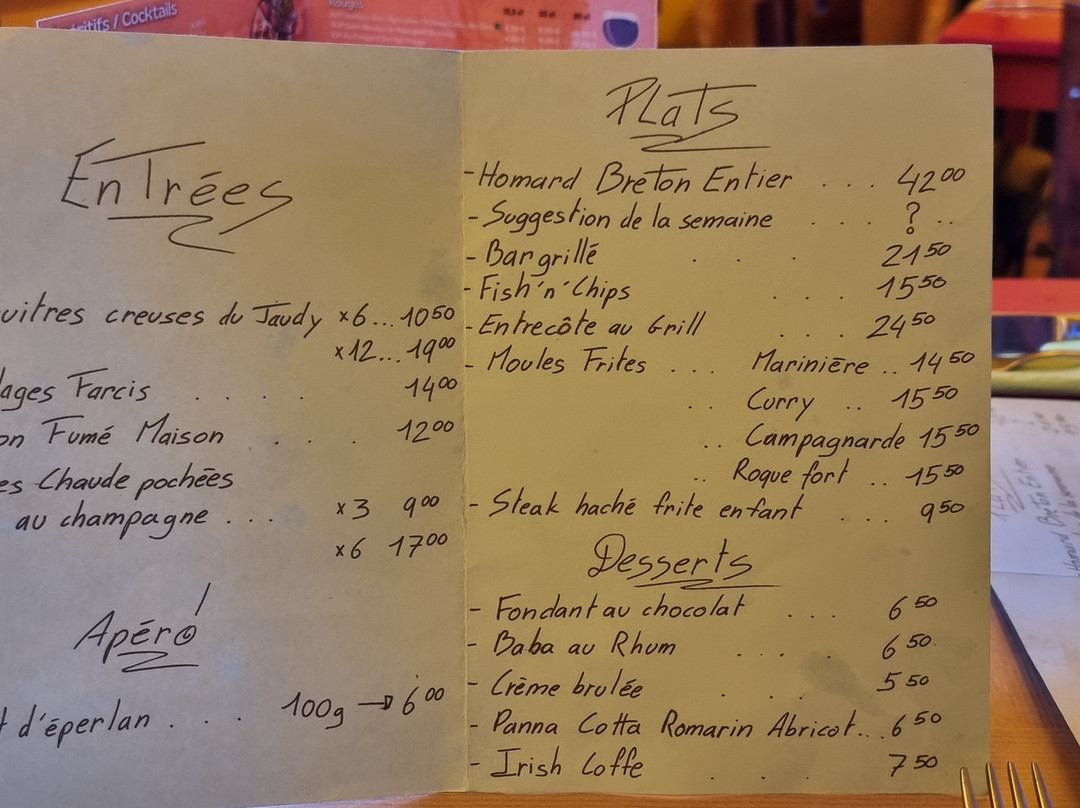 éritifs / Cocktails
Rouges
EnTrées
uitres creuses du Jaudy x6... 10 50
x12... 19 00
lages Farcis .... 14 00
on Fumé Maison ... 12 00
es Chaude pochées
au champagne ... x3 9 00
x6 17 00
Apéro!
t d'éperlan ... 100g → 6 00
PLaTs
- Homard Breton Entier ... 42 00
- Suggestion de la semaine ... ? ..
- Bar grillé ... 21 50
- Fish'n'Chips ... 15 50
- Entrecôte au Grill ... 24 50
- Moules Frites ... Marinière .. 14 50
.. Curry .. 15 50
.. Campagnarde 15 50
.. Roquefort .. 15 50
- Steak haché frite enfant ... 9 50
Desserts
- Fondant au chocolat ... 6 50
- Baba au Rhum ... 6 50
- Crème brulée ... 5 50
- Panna Cotta Romarin Abricot... 6 50
- Irish Coffe ... 7 50
Homard Breton Entier